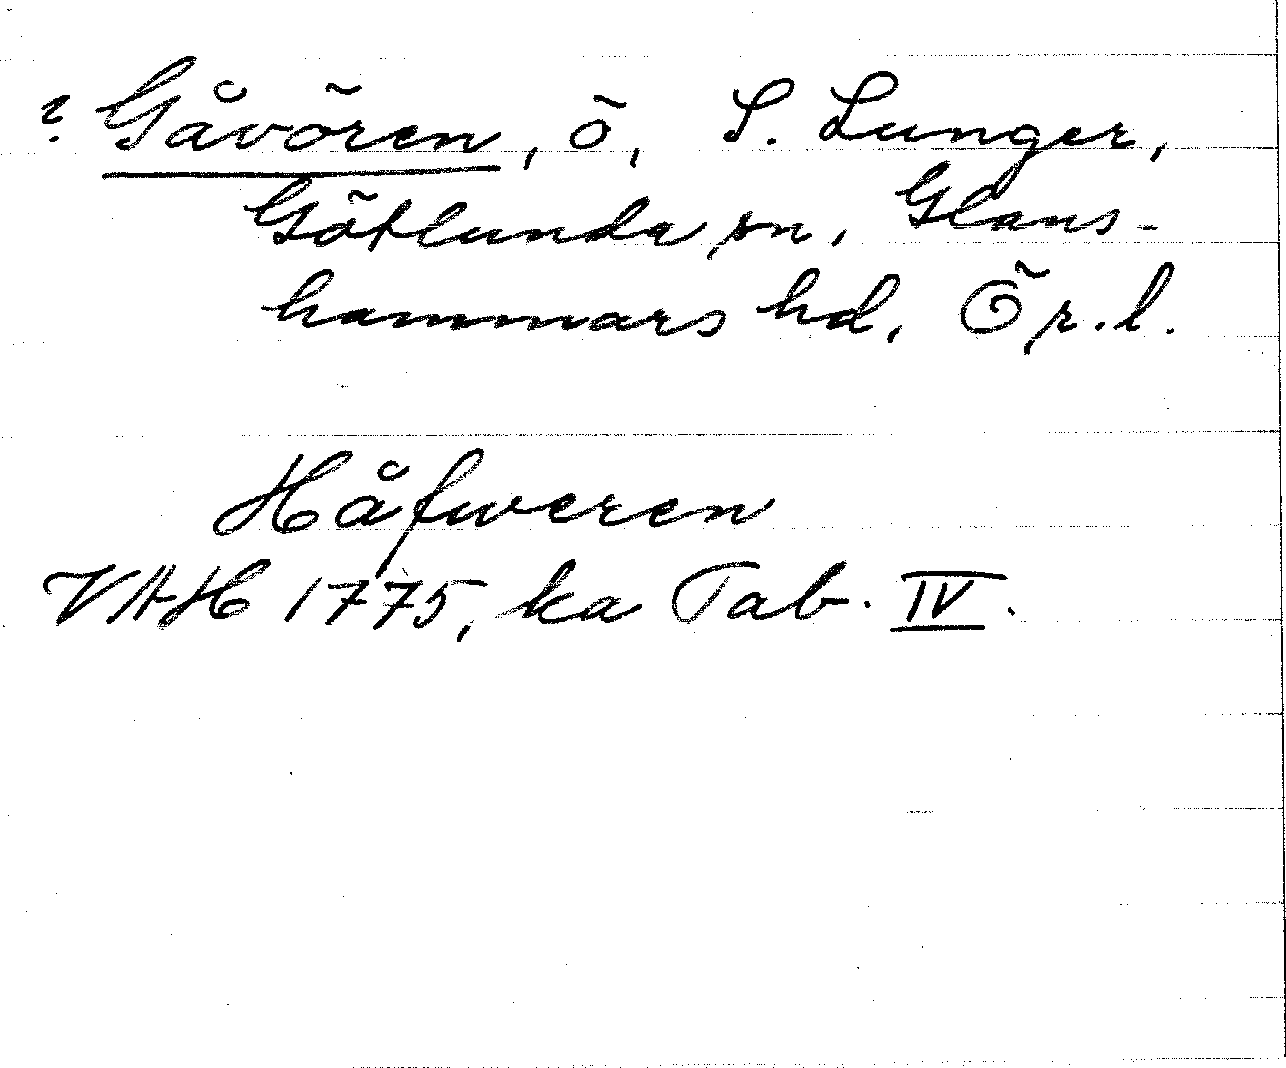 ? Gåvören, ö, S. Lunger,
Götlunda sn, Glans-
hammars hd, Ör.l.
Håfweren
VAH 1775, ka Tab. IV.